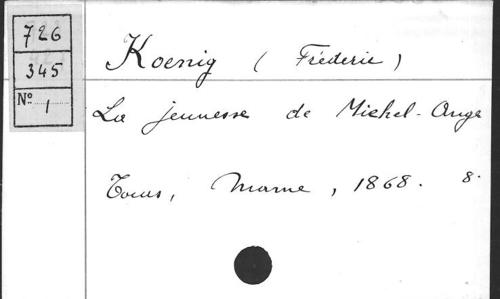 726
345
Nº 1
Koenig (Fréderic)
La jeunesse de Michel-Ange
Tours, Mame, 1868. 8.